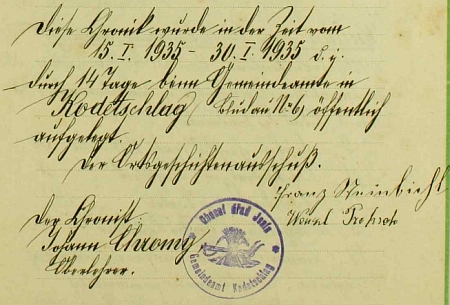 Diese Chronik wurde in der Zeit vom
15. I. 1935 - 30. I. 1935 d. i.
durch 14 Tage beim Gemeindeamte in
Kodetschlag ( № 6) öffentlich
aufgelegt.
Der Ortsgeschichtenausschuß.
Franz
Der Chronist:
Wenzl
Johann Chromy
Oberlehrer.
Obecní úřad
Gemeindeamt Kodetschlag